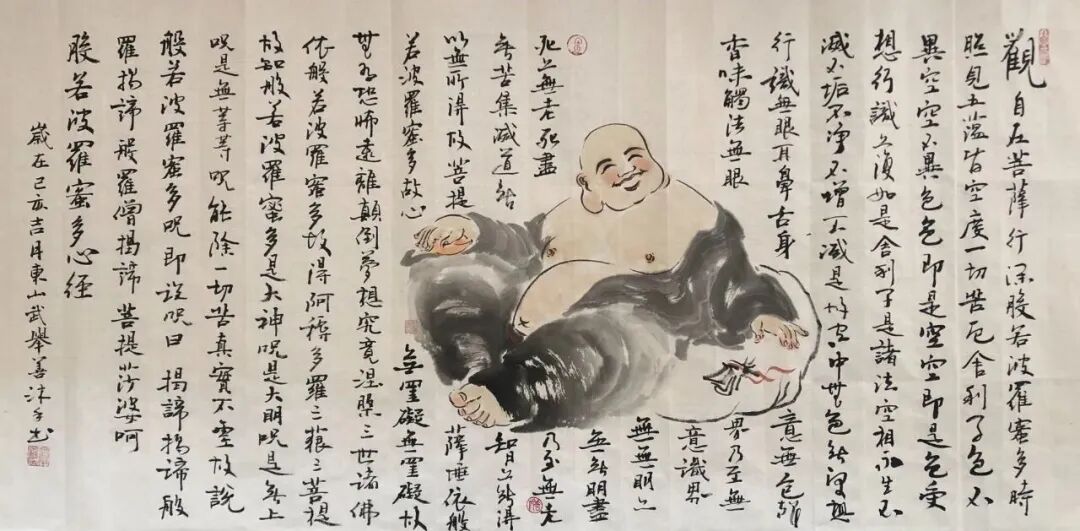 觀自在菩薩行深般若波羅蜜多時
照見五蘊皆空度一切苦厄舍利子色不
異空空不異色色即是空空即是色受
想行識亦復如是舍利子是諸法空相不生不
滅不垢不淨不增不減是故空中無色無受想
行識無眼耳鼻舌身
意無色聲
香味觸法無眼
界乃至無
意識界
無無明亦
無無明盡
乃至無老
死亦無老死盡
無苦集滅道無
智亦無得
以無所得故菩提
薩埵依般
若波羅蜜多故心
無罣礙無罣礙故
無有恐怖遠離顛倒夢想究竟涅槃三世諸佛
依般若波羅蜜多故得阿耨多羅三藐三菩提
故知般若波羅蜜多是大神咒是大明咒是無上
咒是無等等咒能除一切苦真實不虛故說
般若波羅蜜多咒即說咒曰揭諦揭諦般
羅揭諦般羅僧揭諦菩提莎婆呵
般若波羅蜜多心經
歲在己亥吉月東山武舉善沐手书